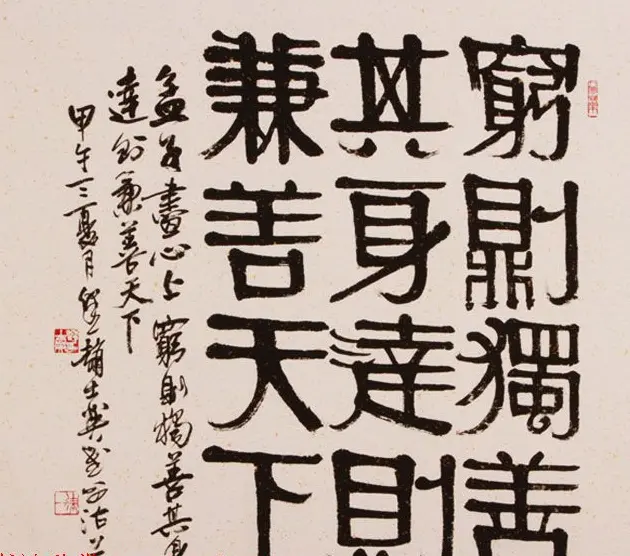 窮則獨善
其身達則
兼善天下
孟子盡心上窮則獨善其身
達則兼善天下
甲午夏月